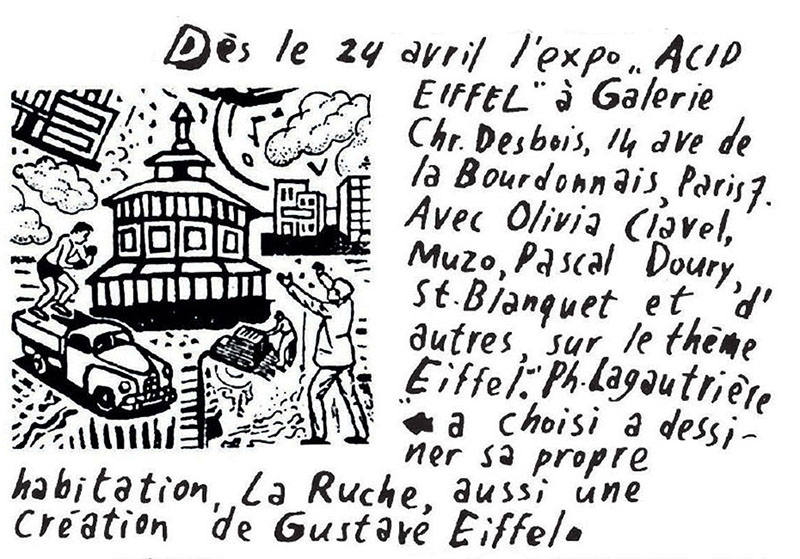 Dès le 24 avril l'expo „ACID
EIFFEL" à Galerie
Chr. Desbois, 14 ave de
la Bourdonnais, Paris 7.
Avec Olivia Clavel,
Muzo, Pascal Doury,
St. Blanquet et d'
autres, sur le thème
Eiffel. Ph. Lagautrière
a choisi a dessi-
ner sa propre
habitation, La Ruche, aussi une
Création de Gustave Eiffel.